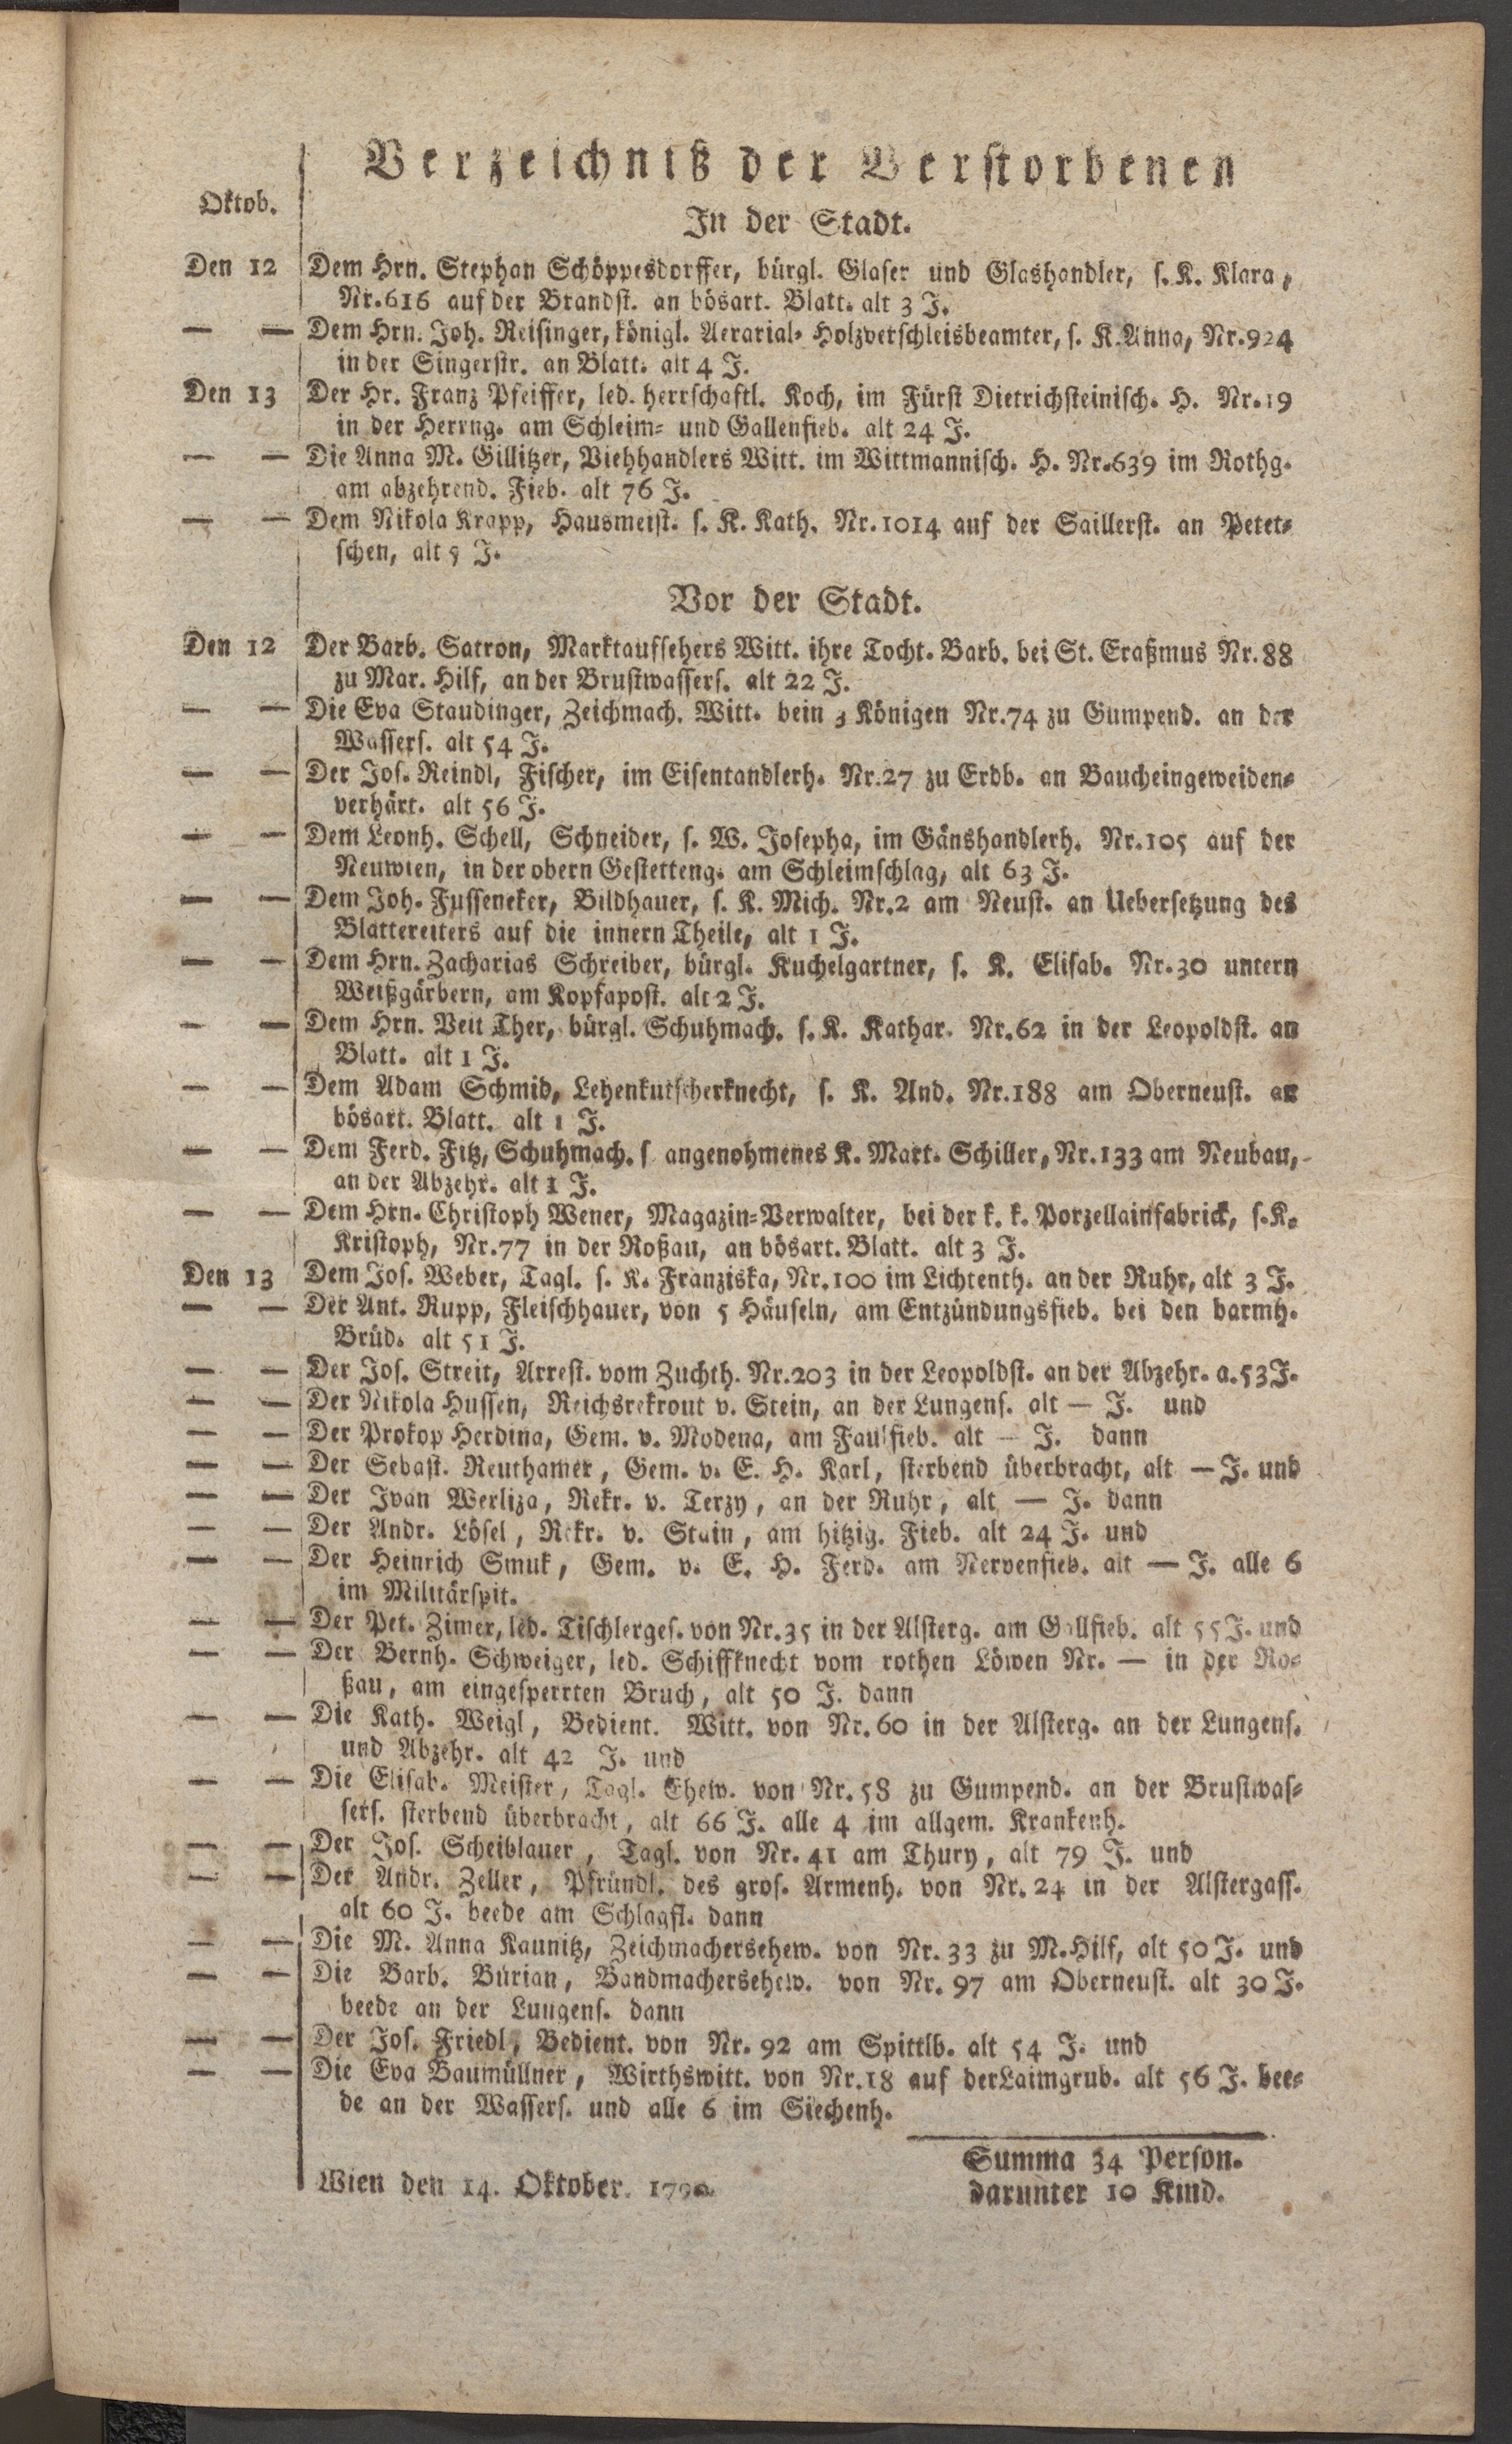 Verzeichniß der Verstorbenen
Oktob.
In der Stadt.
Den 12 Dem Hrn. Stephan Schöppesdorffer, bürgl. Glaser und Glashandler, s. K. Klara,
Nr. 616 auf der Brandst. an bösart. Blatt. alt 3 J.
— — Dem Hrn. Joh. Reisinger, königl. Aerarial- Holzverschleisbeamter, s. K. Anna, Nr. 924
in der Singerstr. an Blatt. alt 4 J.
Den 13 Der Hr. Franz Pfeiffer, led. herrschaftl. Koch, im Fürst Dietrichsteinisch. H. Nr. 19
in der Herrng. am Schleim- und Gallenfieb. alt 24 J.
— — Die Anna M. Gillitzer, Viehhandlers Witt. im Wittmannisch. H. Nr. 639 im Rothg.
am abzehrend. Fieb. alt 76 J.
— — Dem Nikola Krapp, Hausmeist. s. K. Kath. Nr. 1014 auf der Saillerst. an Petet-
schen, alt 5 J.
Vor der Stadt.
Den 12 Der Barb. Satron, Marktaufsehers Witt. ihre Tocht. Barb. bei St. Eraßmus Nr. 88
zu Mar. Hilf, an der Brustwassers. alt 22 J.
— — Die Eva Staudinger, Zeichmach. Witt. bein 3 Königen Nr. 74 zu Gumpend. an der
Wassers. alt 54 J.
— — Der Jos. Reindl, Fischer, im Eisentandlerh. Nr. 27 zu Erdb. an Baucheingeweiden-
verhärt. alt 56 J.
— — Dem Leonh. Schell, Schneider, s. W. Josepha, im Gänshandlerh. Nr. 105 auf der
Neuwien, in der obern Gestetteng. am Schleimschlag, alt 63 J.
— — Dem Joh. Fusseneker, Bildhauer, s. K. Mich. Nr. 2 am Neust. an Uebersetzung des
Blattereiters auf die innern Theile, alt 1 J.
— — Dem Hrn. Zacharias Schreiber, bürgl. Kuchelgartner, s. K. Elisab. Nr. 30 untern
Weißgärbern, am Kopfapost. alt 2 J.
— — Dem Hrn. Veit Ther, bürgl. Schuhmach. s. K. Kathar. Nr. 62 in der Leopoldst. an
Blatt. alt 1 J.
— — Dem Adam Schmid, Lehenkutscherknecht, s. K. And. Nr. 188 am Oberneust. an
bösart. Blatt. alt 1 J.
— — Dem Ferd. Fitz, Schuhmach. s angenohmenes K. Mart. Schiller, Nr. 133 am Neubau,
an der Abzehr. alt 1 J.
— — Dem Hrn. Christoph Wener, Magazin-Verwalter, bei der k. k. Porzellainfabrick, s. K.
Kristoph, Nr. 77 in der Roßau, an bösart. Blatt. alt 3 J.
Den 13 Dem Jos. Weber, Tagl. s. K. Franziska, Nr. 100 im Lichtenth. an der Ruhr, alt 3 J.
— — Der Ant. Rupp, Fleischhauer, von 5 Häuseln, am Entzündungsfieb. bei den barmh.
Brüd. alt 51 J.
— — Der Jos. Streit, Arrest. vom Zuchth. Nr. 203 in der Leopoldst. an der Abzehr. a. 53 J.
— — Der Nikola Hussen, Reichsrekrout v. Stein, an der Lungens. alt — J. und
— — Der Prokop Herdina, Gem. v. Modena, am Faulfieb. alt — J. dann
— — Der Sebast. Reuthamer, Gem. v. E. H. Karl, sterbend überbracht, alt — J. und
— — Der Ivan Werliza, Rekr. v. Terzy, an der Ruhr, alt — J. dann
— — Der Andr. Lösel, Rekr. v. Stain, am hitzig. Fieb. alt 24 J. und
— — Der Heinrich Smuk, Gem. v. E. H. Ferd. am Nervenfieb. alt — J. alle 6
im Militärspit.
— — Der Pet. Zimer, led. Tischlerges. von Nr. 35 in der Alsterg. am Gallfieb. alt 55 J. und
— — Der Bernh. Schweiger, led. Schiffknecht vom rothen Löwen Nr. — in der Ro-
ßau, am eingesperrten Bruch, alt 50 J. dann
— — Die Kath. Weigl, Bedient. Witt. von Nr. 60 in der Alsterg. an der Lungens.
und Abzehr. alt 42 J. und
— — Die Elisab. Meister, Tagl. Ehew. von Nr. 58 zu Gumpend. an der Brustwas-
sers. sterbend überbracht, alt 66 J. alle 4 im allgem. Krankenh.
— — Der Jos. Scheiblauer, Tagl. von Nr. 41 am Thury, alt 79 J. und
— — Der Andr. Zeller, Pfründl. des gros. Armenh. von Nr. 24 in der Alstergass.
alt 60 J. beede am Schlagfl. dann
— — Die M. Anna Kaunitz, Zeichmachersehew. von Nr. 33 zu M. Hilf, alt 50 J. und
— — Die Barb. Burian, Bandmachersehew. von Nr. 97 am Oberneust. alt 30 J.
beede an der Lungens. dann
— — Der Jos. Friedl, Bedient. von Nr. 92 am Spittlb. alt 54 J. und
— — Die Eva Baumüllner, Wirthswitt. von Nr. 18 auf der Laimgrub. alt 56 J. bee-
de an der Wassers. und alle 6 im Siechenh.
Summa 34 Person.
Wien den 14. Oktober.
darunter 10 Kind.